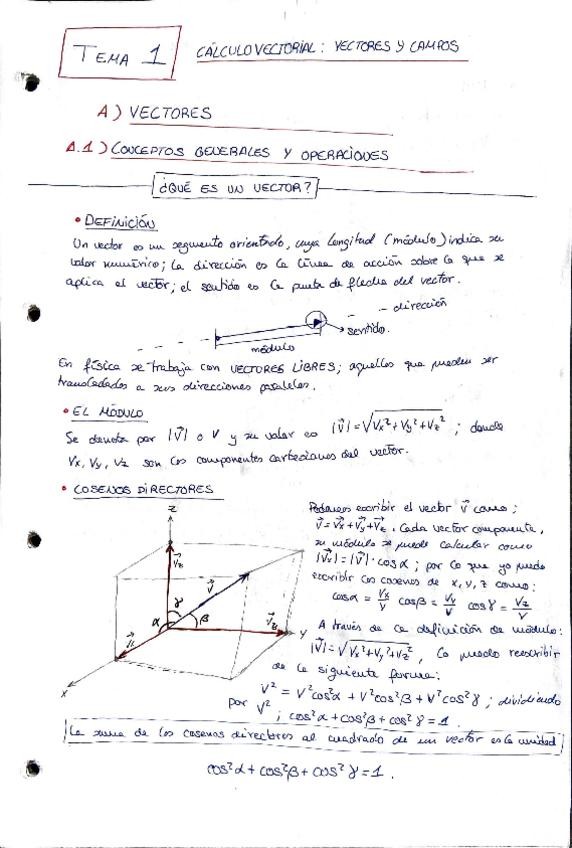 TEMA 1
CÁLCULO VECTORIAL: VECTORES Y CAMPOS
A) VECTORES
A.1) CONCEPTOS GENERALES Y OPERACIONES
¿QUÉ ES UN VECTOR?
• DEFINICIÓN
Un vector es un segmento orientado, cuya longitud (módulo) indica su
valor numérico; la dirección es la línea de acción sobre la que se
aplica el vector; el sentido es la punta de flecha del vector.
dirección
sentido.
módulo
En física se trabaja con VECTORES LIBRES; aquellos que pueden ser
transladados a sus direcciones paralelas.
• EL MÓDULO
Se denota por |V⃗| o V y su valor es |V⃗| = √Vx²+Vy²+Vz² ; donde
Vx, Vy, Vz son las componentes cartesianas del vector.
• COSENOS DIRECTORES
Podemos escribir el vector V⃗ como;
V⃗ = V⃗x + V⃗y + V⃗z. Cada vector componente,
su módulo se puede calcular como
|V⃗x| = |V⃗| · cos α ; por lo que yo puedo
escribir los cosenos de x, y, z como:
cos α = Vx/V cos β = Vy/V cos γ = Vz/V
A través de la definición de módulo:
|V⃗| = √Vx²+Vy²+Vz² , lo puedo reescribir
de la siguiente forma:
V² = V²cos²α + V²cos²β + V²cos²γ ; dividiendo
por V² ; cos²α + cos²β + cos²γ = 1.
z
V⃗z
V⃗
γ
α
β
y
x
La suma de los cosenos directores al cuadrado de un vector es la unidad
cos²α + cos²β + cos²γ = 1.